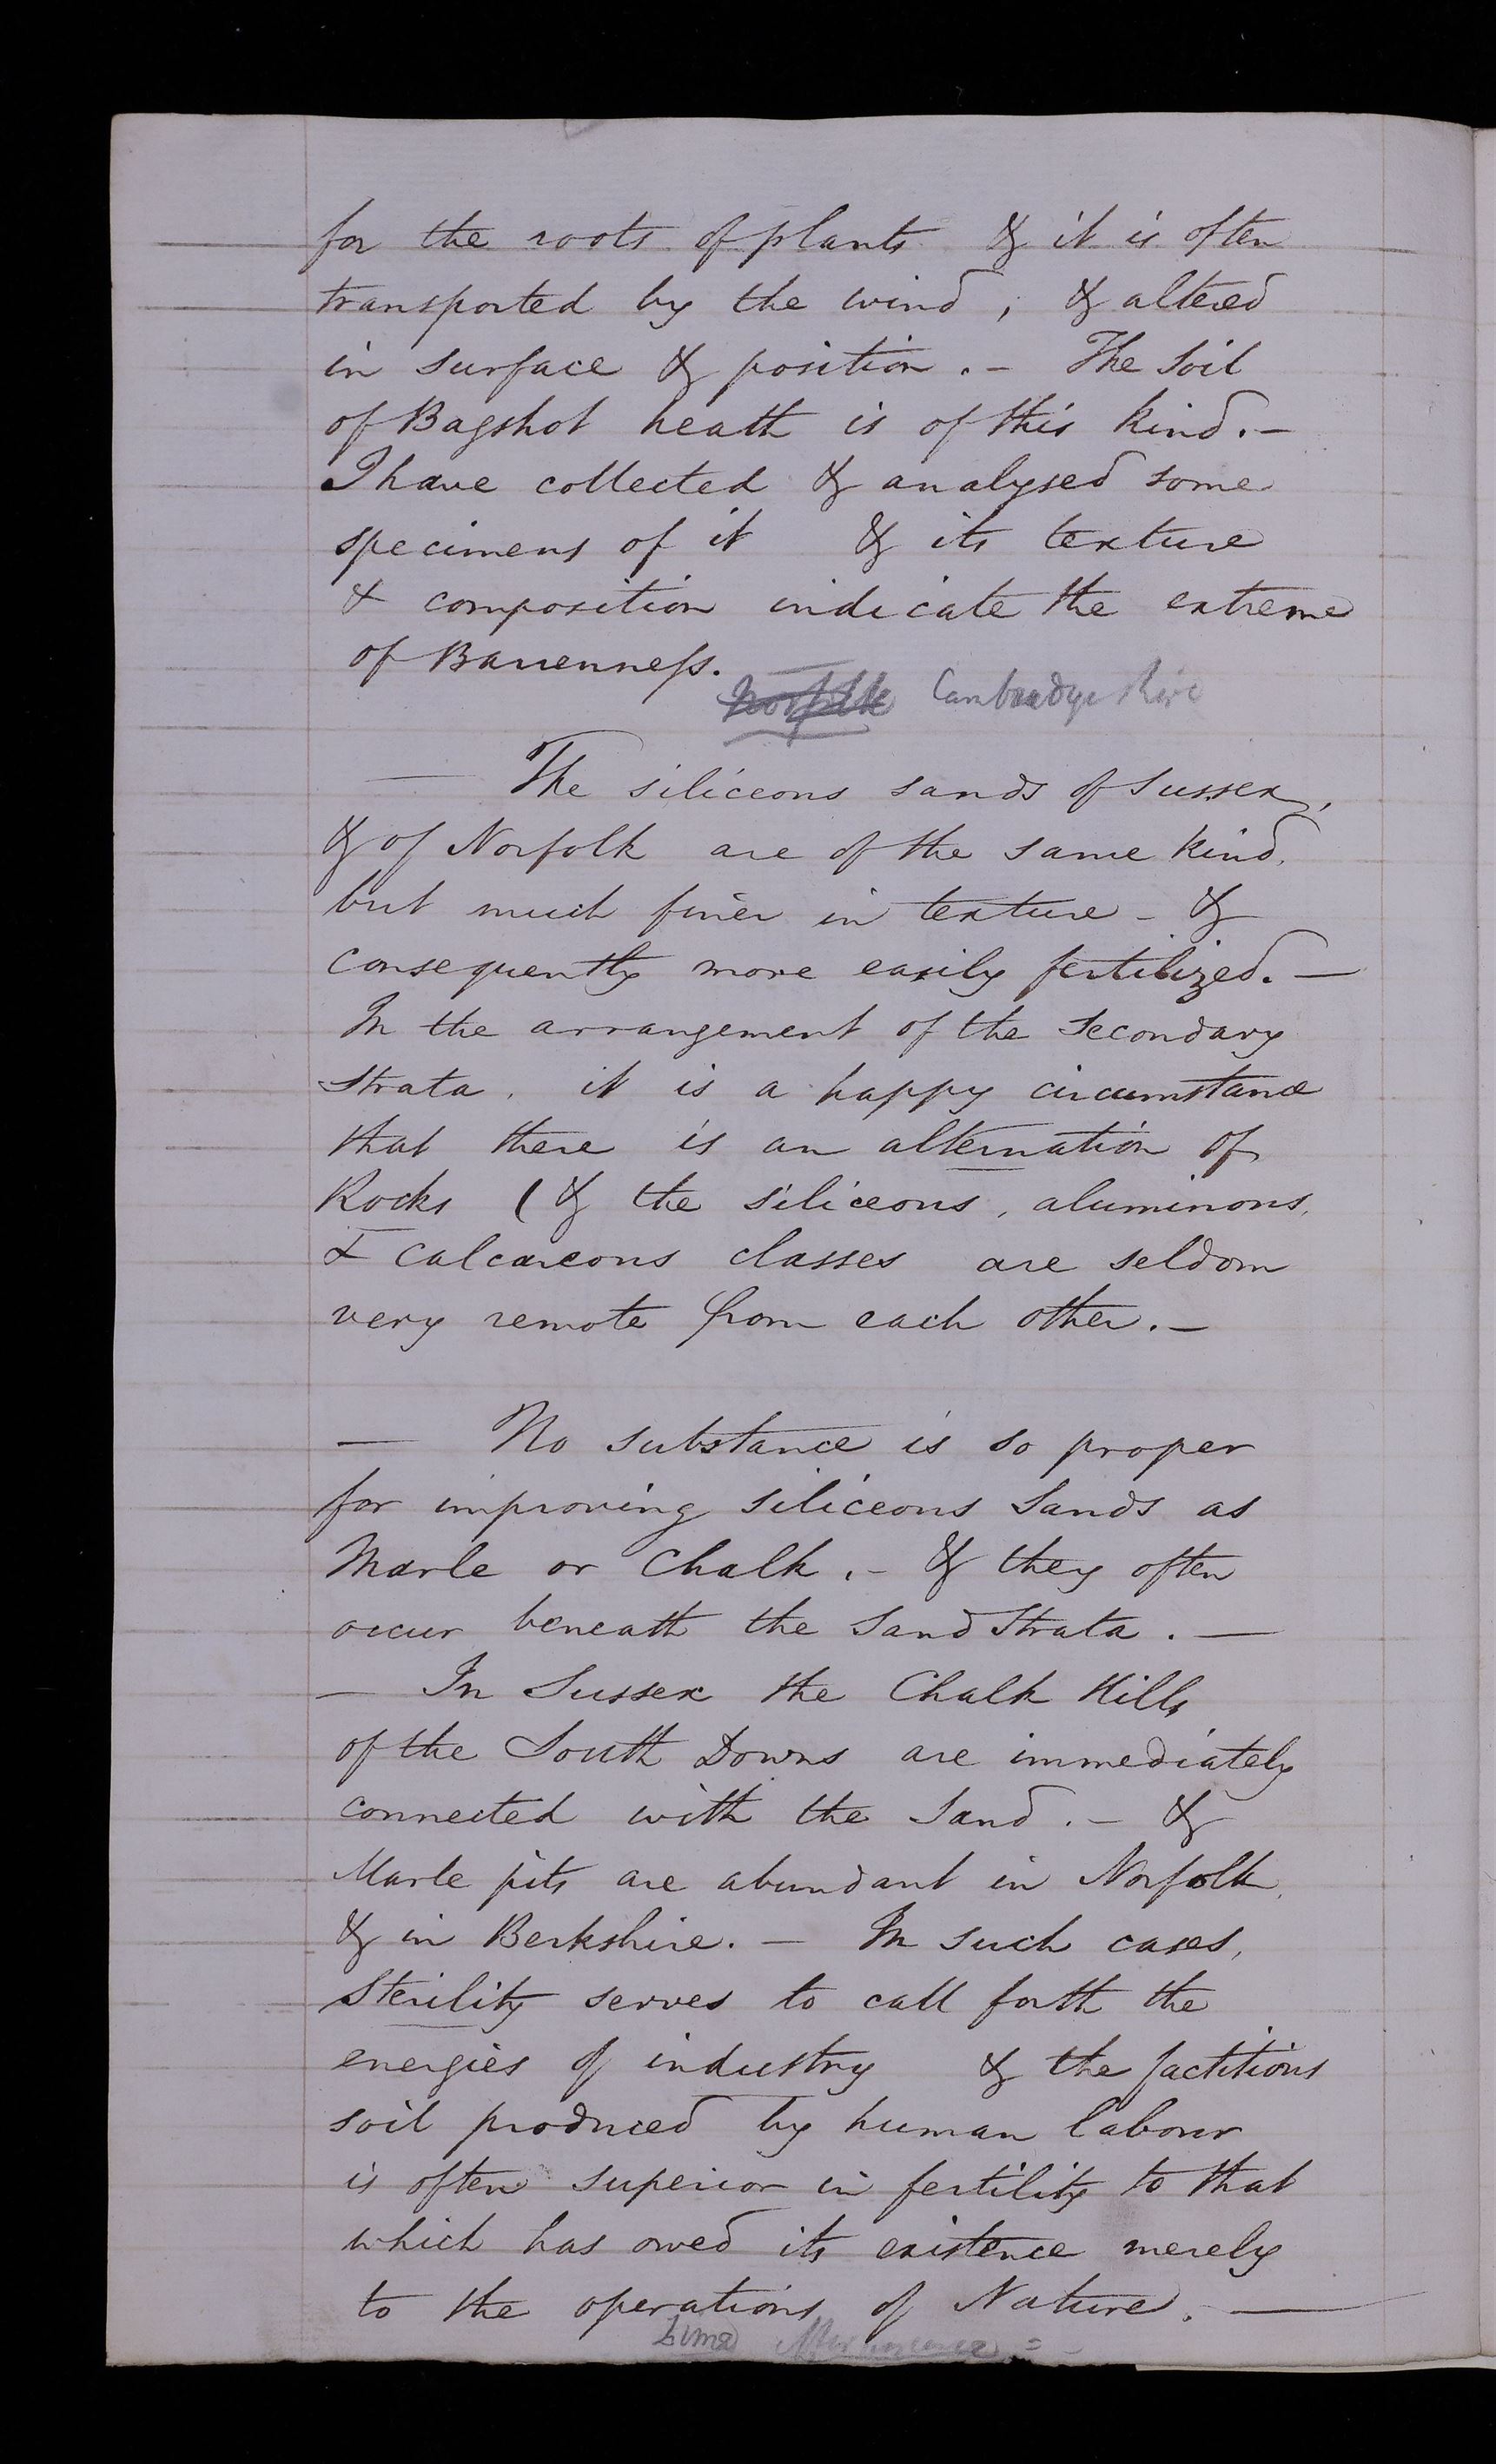 for the roots of plants & it is often
transported by the wind, & altered
in surface & position. - The Soil
of Bagshot heath is of this kind. -
I have collected & analysed some
specimens of it & its texture
& composition indicate the extreme
of Barrenneſs.
Norfolk Cambridgeshire
— The siliceous sands of Sussex,
& of Norfolk are of the same kind,
but much finer in texture - &
consequently more easily fertilized. —
In the arrangement of the Secondary
Strata, it is a happy circumstance
that there is an alternation of
Rocks ( & the siliceous, aluminous,
& calcareous classes are seldom
very remote from each other. -
— No substance is so proper
for improving siliceous Sands as
Marle or Chalk. - & they often
occur beneath the Sand Strata. —
— In Sussex the Chalk Hills
of the South Downs are immediately
connected with the Sand. - &
Marle pits are abundant in Norfolk,
& in Berkshire. - In such cases,
Sterility serves to call forth the
energies of industry & the factitious
soil produced by human labour
is often superior in fertility to that
which has owed its existence merely
to the operations of Nature. —
Lime